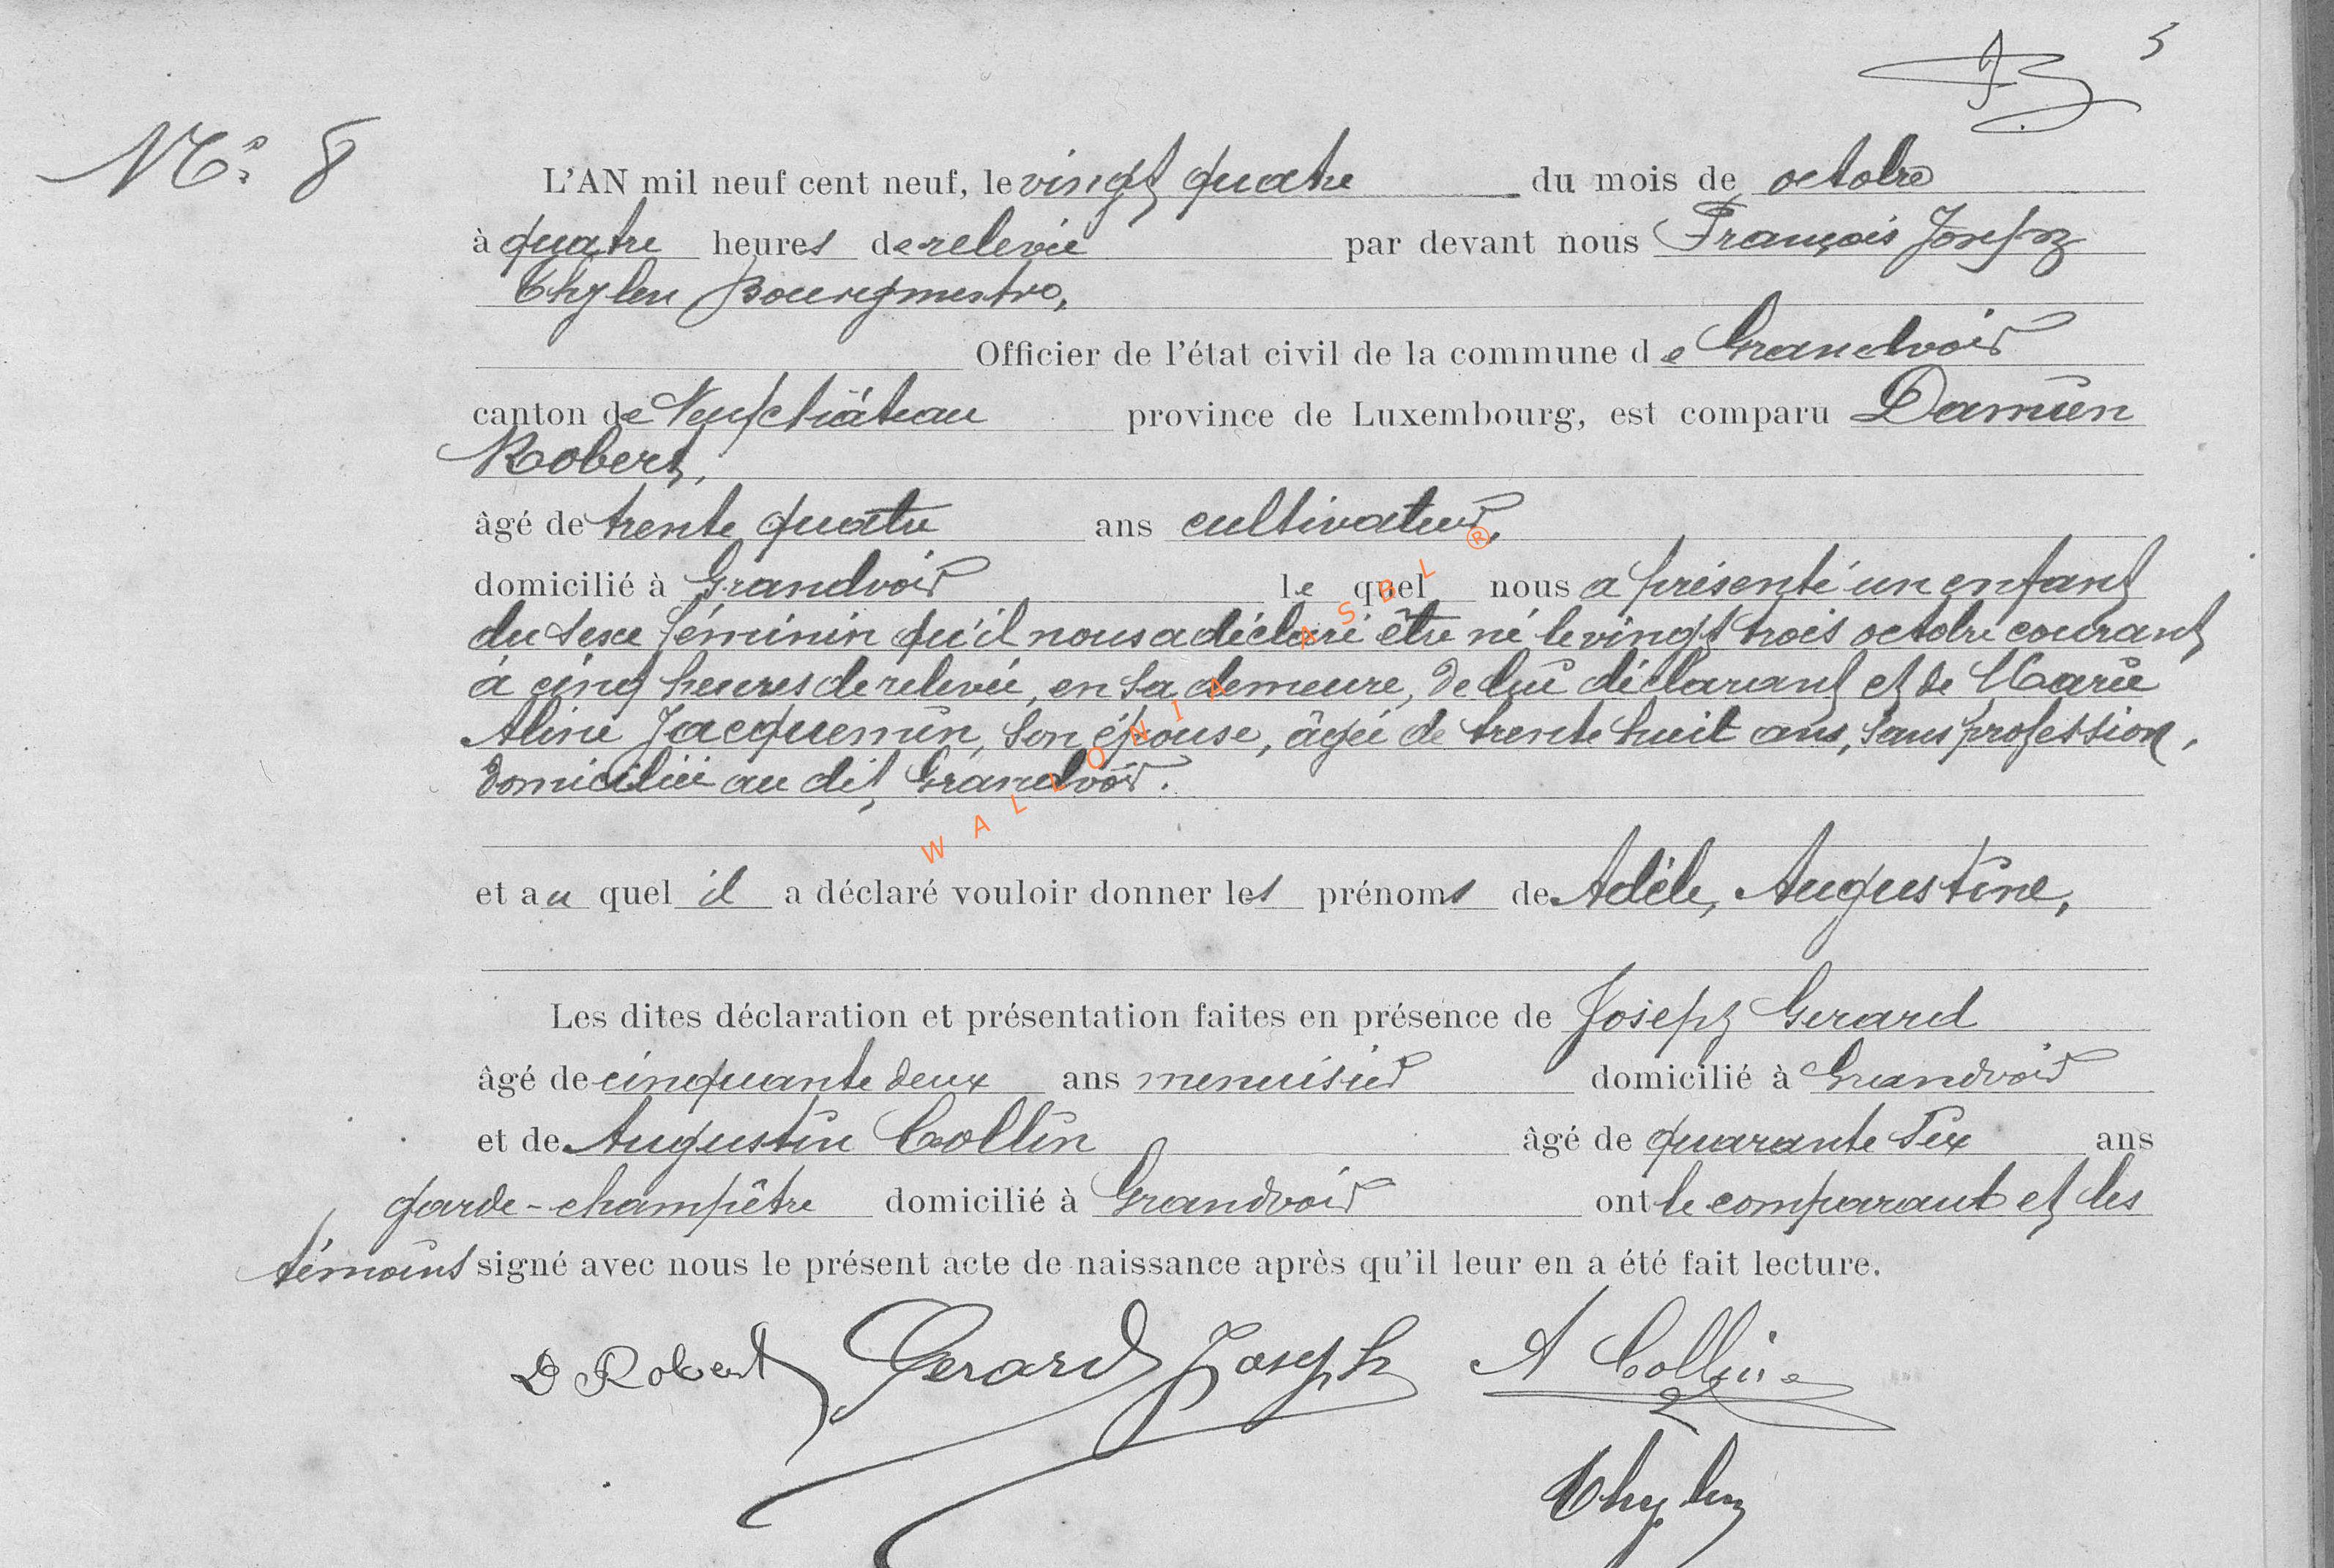 5
N° 8
L'AN mil neuf cent neuf, le vingt quatre du mois de octobre
à quatre heures de relevée par devant nous François Joseph
Thylen Bourgmestre,
Officier de l'état civil de la commune de Grandvoir
canton de Neufchâteau province de Luxembourg, est comparu Damien
Robert,
âgé de trente quatre ans cultivateur,
domicilié à Grandvoir le quel nous a présenté un enfant
du sexe féminin qu'il nous a déclaré être né le vingt trois octobre courant
à cinq heures de relevée, en sa demeure, de lui déclarant et de Marie
Aline Jacquemin, son épouse, âgée de trente huit ans, sans profession,
domiciliée au dit Grandvoir.
WALLONIA ASBL ®
et au quel il a déclaré vouloir donner les prénoms de Adèle, Augustine,
Les dites déclaration et présentation faites en présence de Joseph Gerard
âgé de cinquante deux ans menuisier domicilié à Grandvoir
et de Augustin Collin âgé de quarante six ans
garde-champêtre domicilié à Grandvoir ont le comparant et les
témoins signé avec nous le présent acte de naissance après qu'il leur en a été fait lecture.
D Robert Gerard Joseph A Collin
Thylen